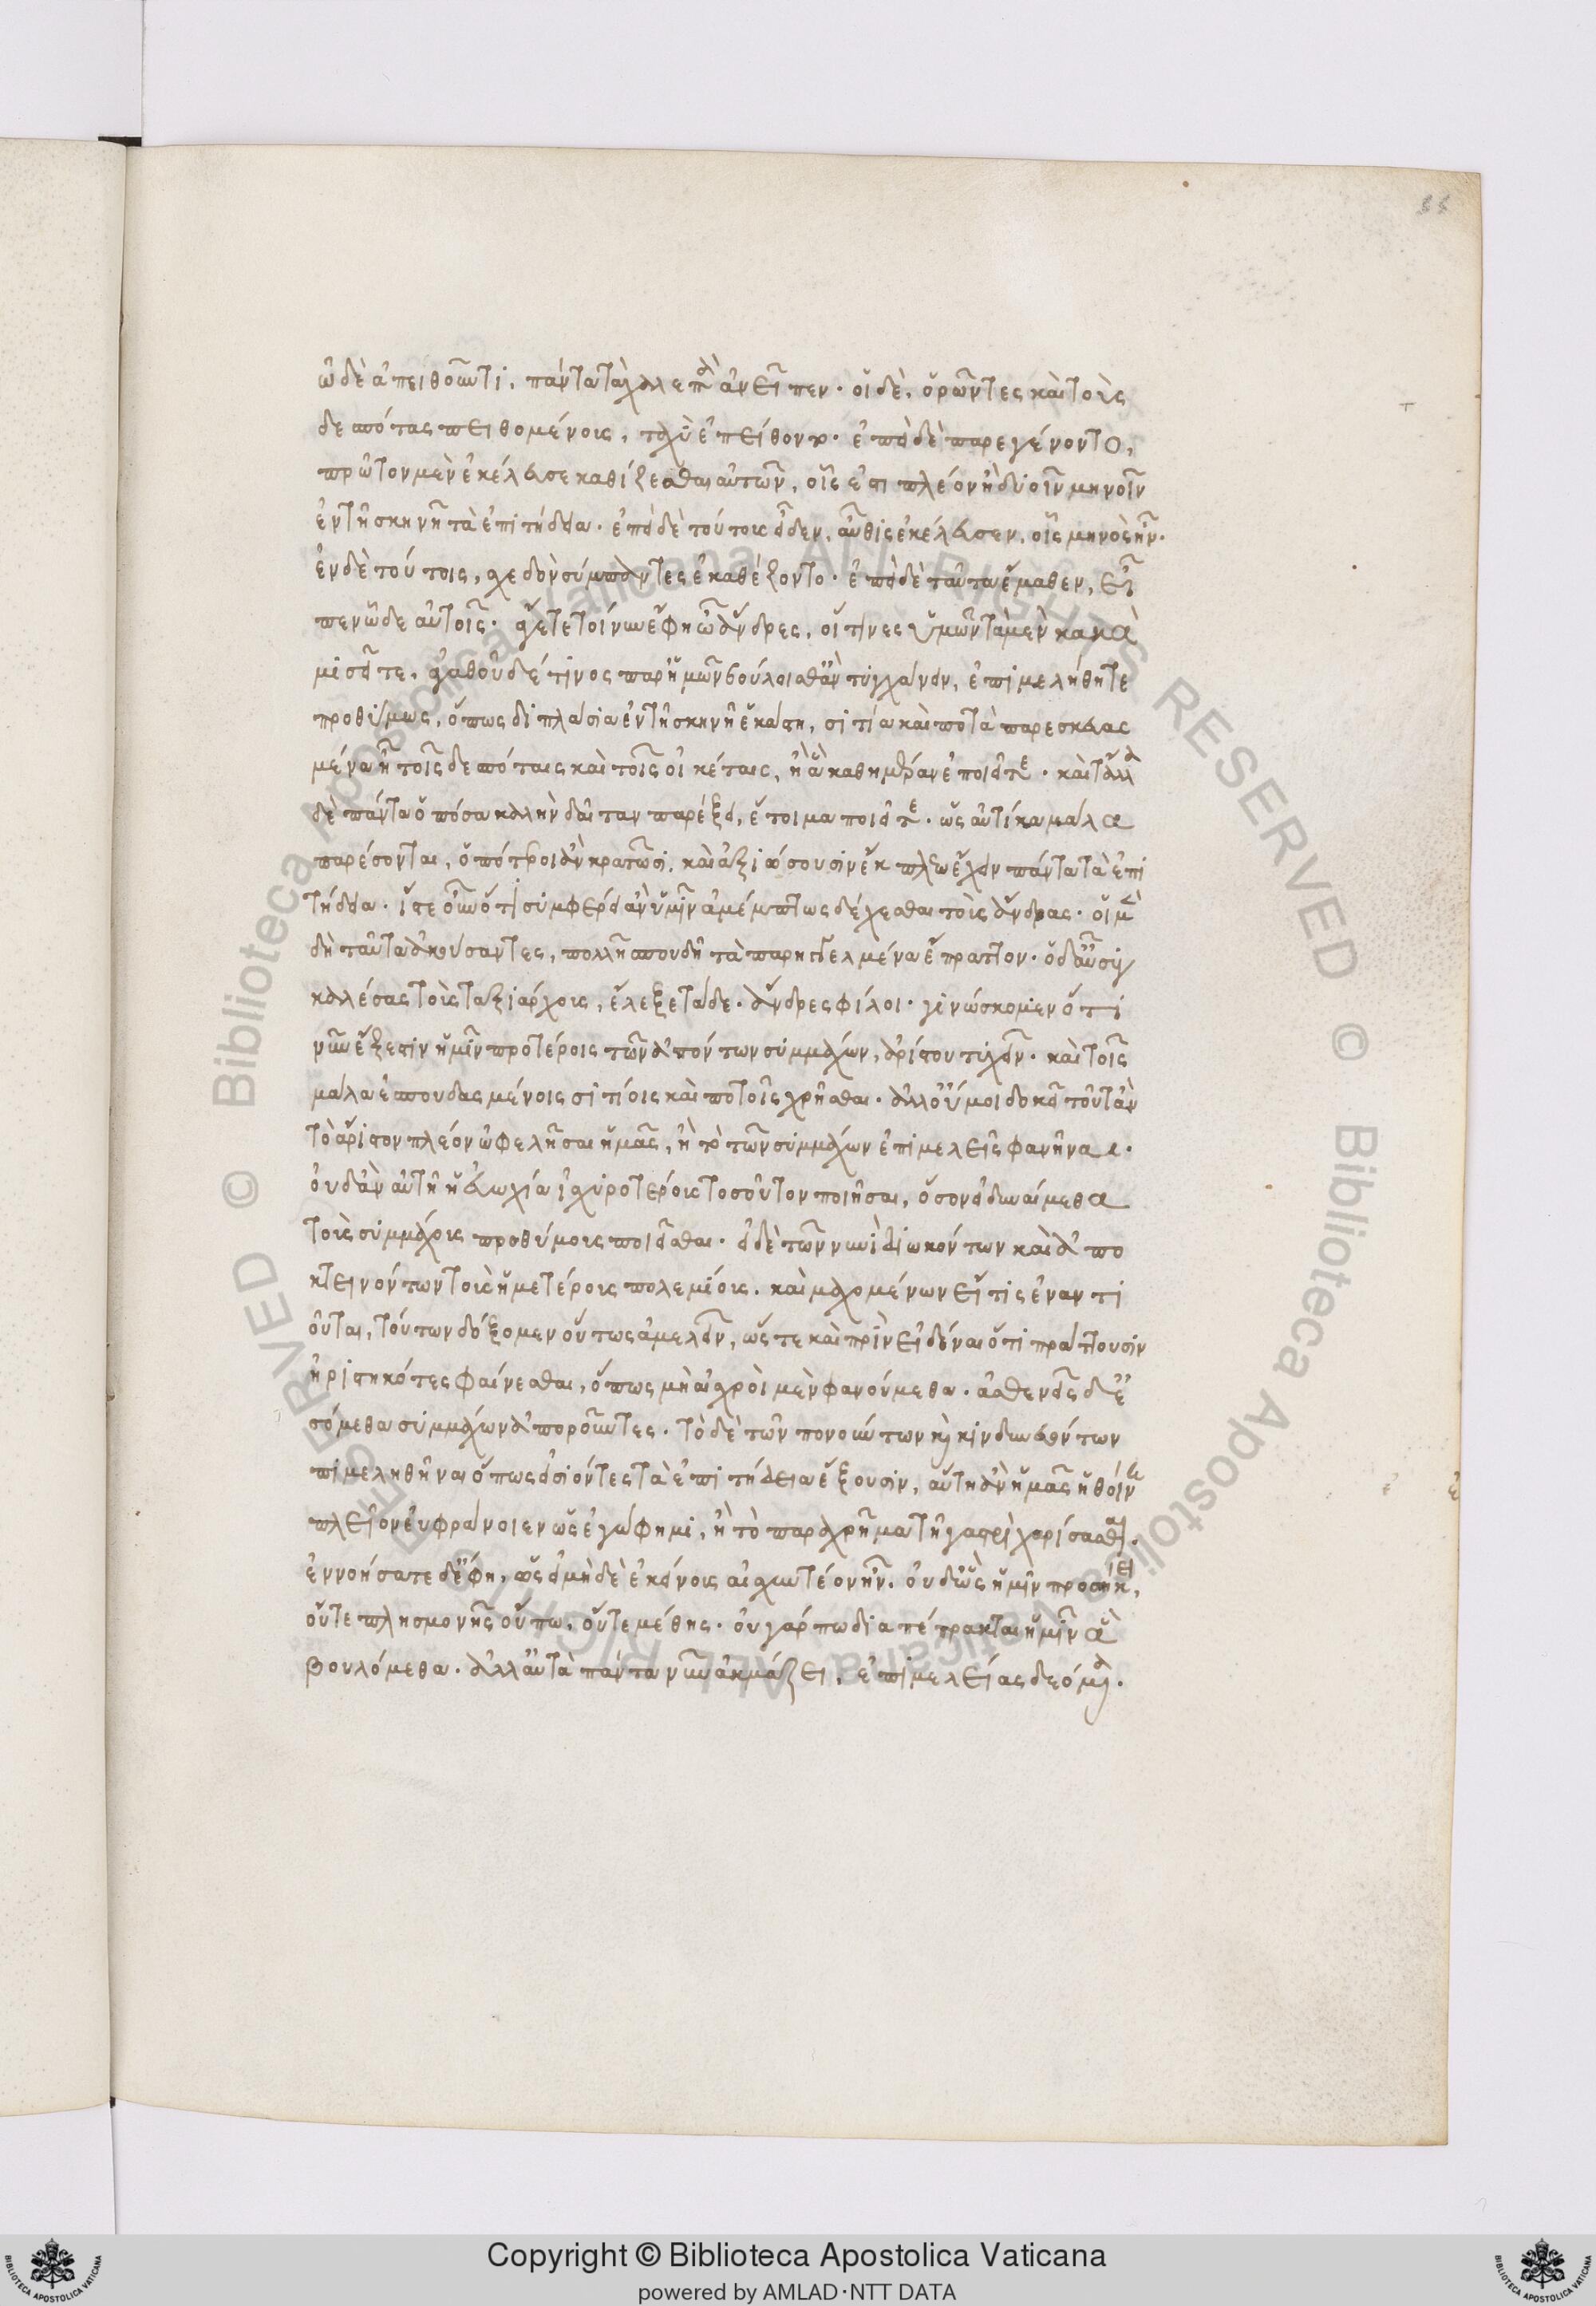 55
ᾧ δὲ ἀπειθοῦντι, πάντα τὰ χαλεπὰ ἀνεῖπεν. οἱ δὲ, ὁρῶντες καὶ τοὺς
δεσπότας πειθομένους, ταχὺ ἐπείθοντο. ἐπεὶ δὲ παρεγένοντο,
πρῶτον μὲν ἐκέλευσε καθίζεσθαι αὐτῶν, οἷς ἐστι πλέον ἢ δυοῖν μηνοῖν
ἐν τῇ σκηνῇ τὰ ἐπιτήδεια. ἐπεὶ δὲ τούτους εἶδεν, αὖθις ἐκέλευσεν, οἷς μηνὸς ἦν.
ἐν δὲ τούτοις, σχεδὸν σύμπαντες ἐκαθέζοντο. ἐπεὶ δὲ ταῦτα ἔμαθεν, εἶ
πεν ὧδε αὐτοῖς. ἄγετε τοίνυν ἔφη ὦ ἄνδρες, οἵτινες ὑμῶν τὰ μὲν κακὰ
μισεῖτε, ἀγαθοῦ δέ τινος παρ' ἡμῶν βούλοισθ' ἂν τυγχάνειν, ἐπιμελήθητε
προθύμως, ὅπως διπλάσια ἐν τῇ σκηνῇ ἑκάστῃ, σιτία καὶ ποτὰ παρεσκευας
μένα ᾖ τοῖς δεσπόταις καὶ τοῖς οἰκέταις, ἢ ἃ καθημέραν ἐποιεῖτε. καὶ τἄλλα
δὲ πάντα ὁπόσα καλὴν δαῖταν παρέξει, ἕτοιμα ποιεῖτε. ὡς αὐτίκα μάλα
παρέσονται, ὁπότεροι ἂν κρατῶσι. καὶ ἀξιώσουσιν ἔκπλεω ἔχειν πάντα τὰ ἐπι
τήδεια. ἴστε οὖν ὅτι συμφέρει ἂν ὑμῖν ἀμέμπτως δέχεσθαι τοὺς ἄνδρας. οἱ μὲν
δὴ ταῦτα ἀκούσαντες, πολλῇ σπουδῇ τὰ παρηγγελμένα ἔπραττον. ὁ δ' αὖ συγ
καλέσας τοὺς ταξιάρχους, ἔλεξε τάδε. ἄνδρες φίλοι. γινώσκομεν ὅτι
νῦν ἔξεστιν ἡμῖν προτέροις τῶν ἀπόντων συμμάχων, ἀρίστου τυχεῖν. καὶ τοῖς
μάλα ἐσπουδασμένοις σιτίοις καὶ ποτοῖς χρῆσθαι. ἀλλ' οὔ μοι δοκεῖ τοῦτ' ἂν
τὸ ἄριστον πλέον ὠφελῆσαι ἡμᾶς, ἢ τὸ τῶν συμμάχων ἐπιμελεῖς φανῆναι.
οὐδ' ἂν αὐτὴ ἡ εὐωχία ἰσχυροτέρους τοσοῦτον ποιῆσαι, ὅσον εἰ δυναίμεθα
τοὺς συμμάχους προθύμους ποιεῖσθαι. εἰ δὲ τῶν νυνὶ διωκόντων καὶ ἀπο
κτεινόντων τοὺς ἡμετέρους πολεμίους, καὶ μαχομένων εἴ τις ἐναντι
οῦται, τούτων δόξομεν οὕτως ἀμελεῖν, ὥστε καὶ πρὶν εἰδέναι ὅτι πράττουσιν
ἠριστηκότες φαίνεσθαι, ὅπως μὴ αἰσχροὶ μὲν φανούμεθα. ἀσθενεῖς δ' ἐ
σόμεθα συμμάχων ἀποροῦντες. τὸ δὲ τῶν πονούντων καὶ κινδυνευόντων
πιμεληθῆναι ὅπως εἰσιόντες τὰ ἐπιτήδεια ἕξουσιν, αὕτη ἂν ἡμᾶς ἡ θοίνη
πλεῖον εὐφράνοιεν ὡς ἐγώ φημι, ἢ τὸ παραχρῆμα τῇ γαστρὶ χαρίσασθαι.
ἐννοήσατε δ' ἔφη, ὡς εἰ μηδὲ ἐκείνους αἰσχυντέον ἦν. οὐδ' ὣς ἡμῖν προσήκει,
οὔτε πλησμονῆς οὔπω, οὔτε μέθης. οὐ γάρ πω διαπέπρακται ἡμῖν ἃ
βουλόμεθα. ἀλλ' αὐτὰ πάντα νῦν ἀκμάζει, ἐπιμελείας δεόμενα.